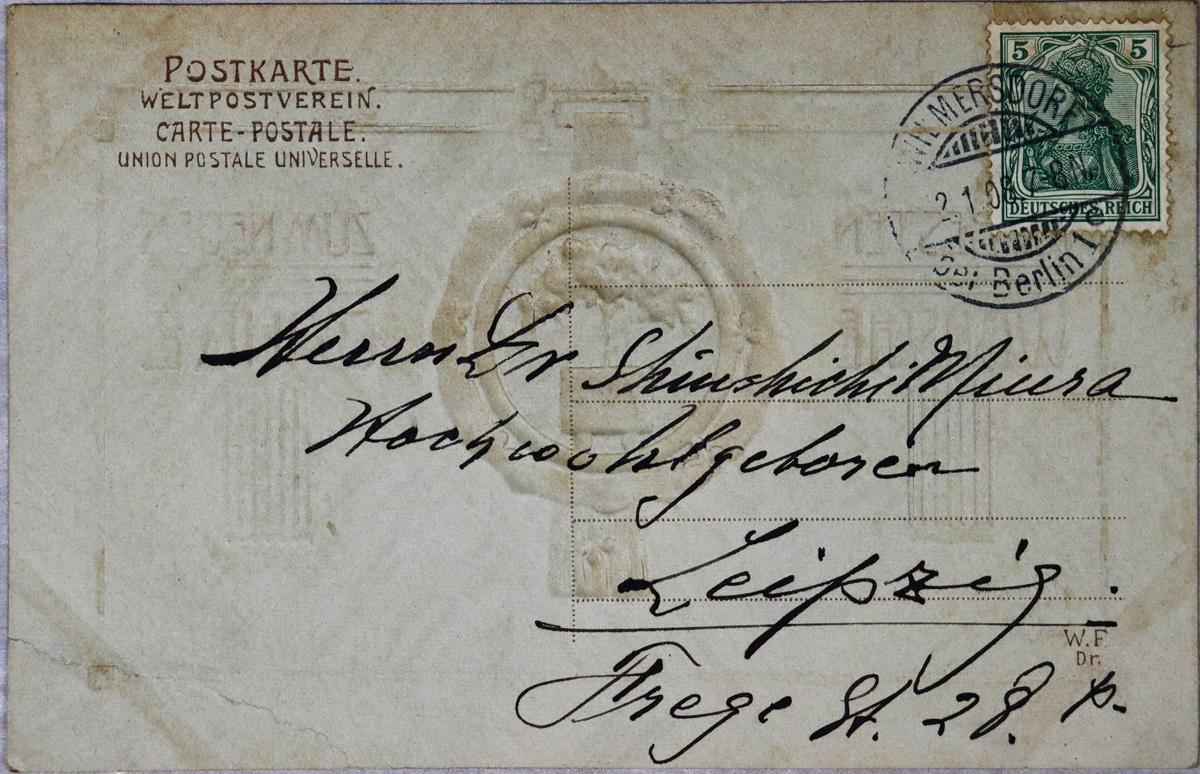 POSTKARTE.
WELTPOSTVEREIN.
CARTE-POSTALE.
UNION POSTALE UNIVERSELLE.
5 5
DEUTSCHES REICH
WILMERSDORF
2.1.08. 7-8N.
bei Berlin 1e
ZUM NEUEN
Herrn Dr Shinshichi Miura
Hochwohlgeboren
Leipzig.
Frege St. 28. p.
W.F.
Dr.